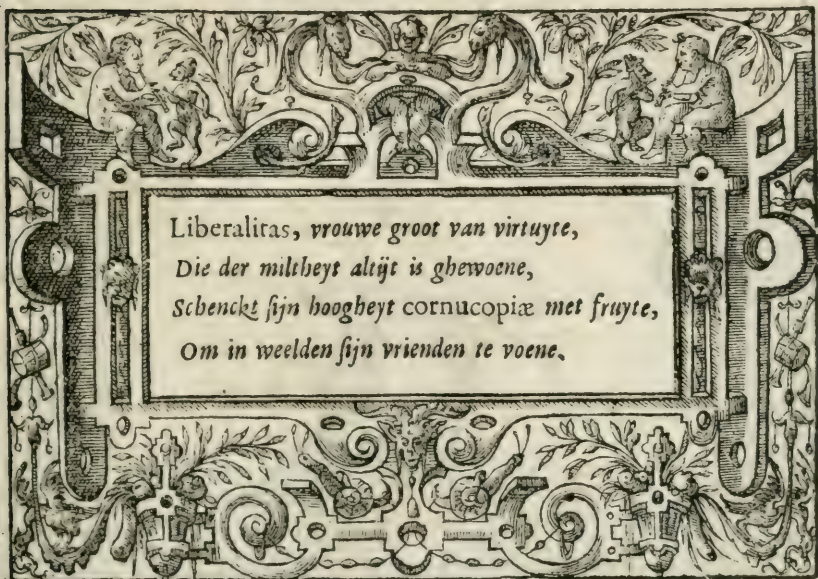 Liberalitas, vrouwe groot van virtuyte,
Die der miltheyt altijt is ghewoene,
Schenckt sijn hoogheyt cornucopiæ met fruyte,
Om in weelden sijn vrienden te voene.